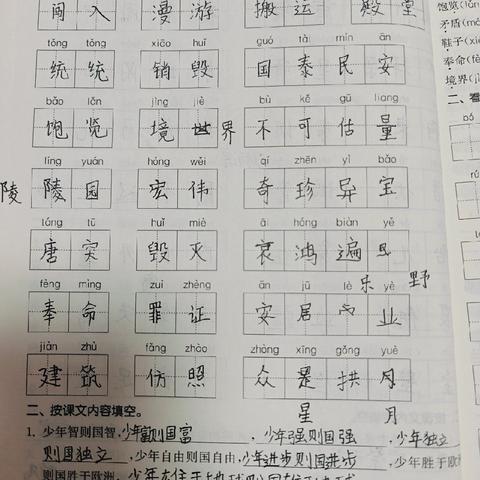 闯入 漫游 搬运 殿堂
tǒng tǒng xiāo huǐ guó tài mín ān
统统 销毁 国泰民安
bǎo lǎn jìng jiè bù kě gū liang
饱览 境世界 不可估量
líng yuán hóng wěi qí zhēn yì bǎo
陵 陵园 宏伟 奇珍异宝
táng tū huǐ miè āi hóng biàn yě
唐突 毁灭 哀鸿遍
乐 野
fèng mìng zuì zhèng ān jū lè yè
奉命 罪证 安居 业
jiàn zhù fǎng zhào zhòng xīng gǒng yuè
建筑 仿照 众是拱月
星 月
二、按课文内容填空。
1. 少年智则国智,少年富则国富,少年强则国强,少年独立
则国独立,少年自由则国自由,少年进步则国进步,少年胜于
则国胜于欧洲,
饱览
矛盾
鞋子
奉命
境界
二、看